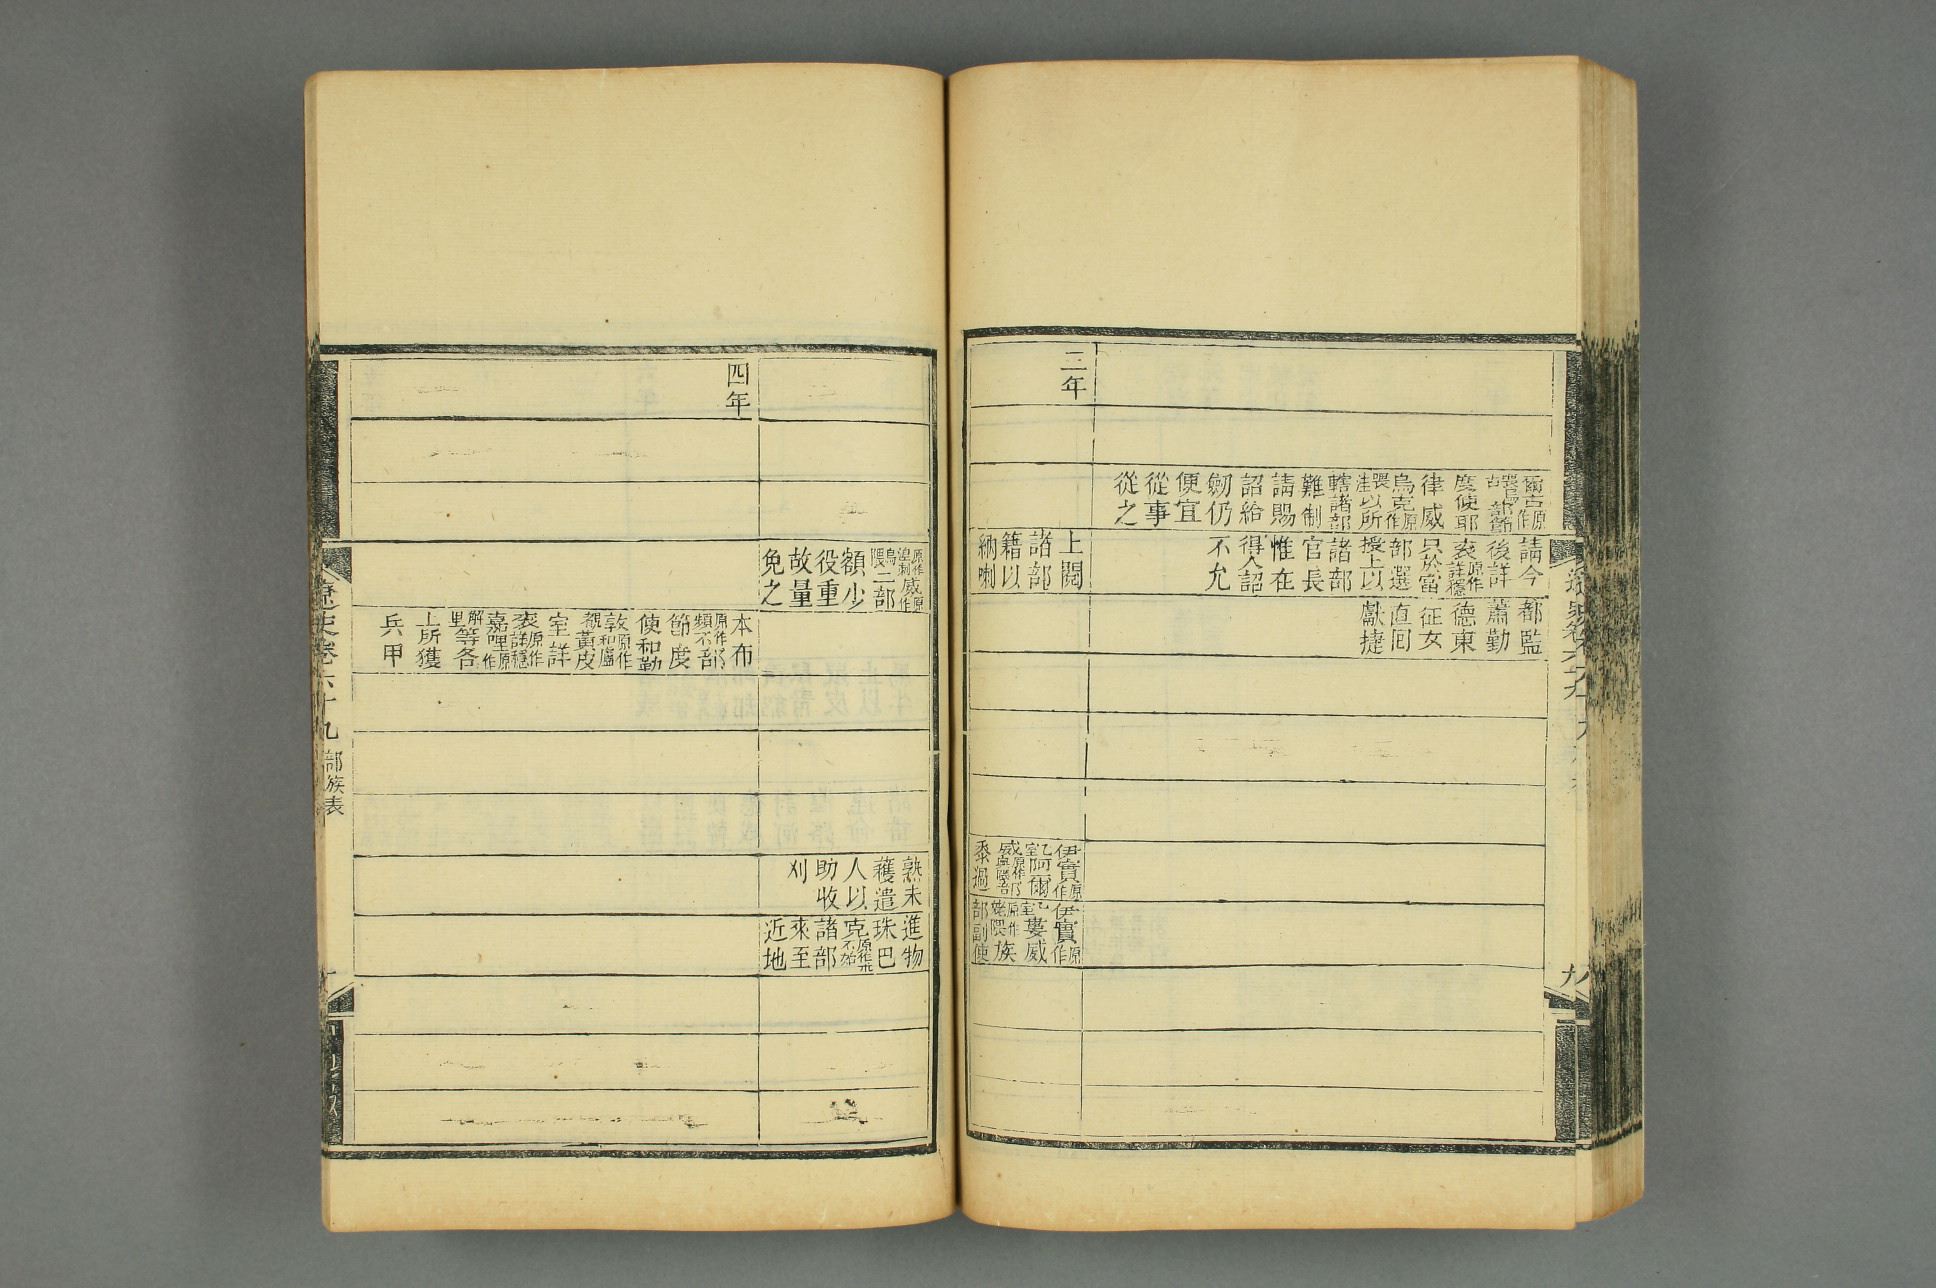 爾古原作
隈烏
古部節
度使耶
律威
烏克原作
隈
洼以所
轄諸部
難制
請賜
詔給
劒仍
便宜
從事
從之
請今
後詳
衮原作
詳穩
只於當
部選
授上以
諸部
官長
惟在
得人詔
不允
都監
蕭勤
德東
征女
直回
獻捷
三年
上閱
諸部
籍以
納喇
伊實原作
乙室阿爾
威原作部
黍過
伊實原作
乙室婁威
原作
隗族
部副使
九
原作
湼剌威原作
烏
隈二部
額少
役重
故量
免之
熟未
穫遣
人以
助收
刈
進物
珠巴
克原作
諸部
來至
近地
四年
本布
原作部
頻不部
節度
使和勒
敦原作
敦和盧
覩黃皮
室詳
衮原作
詳穩
嘉哩原作
解
里等各
上所獲
兵甲
遼史卷六十九 部族表